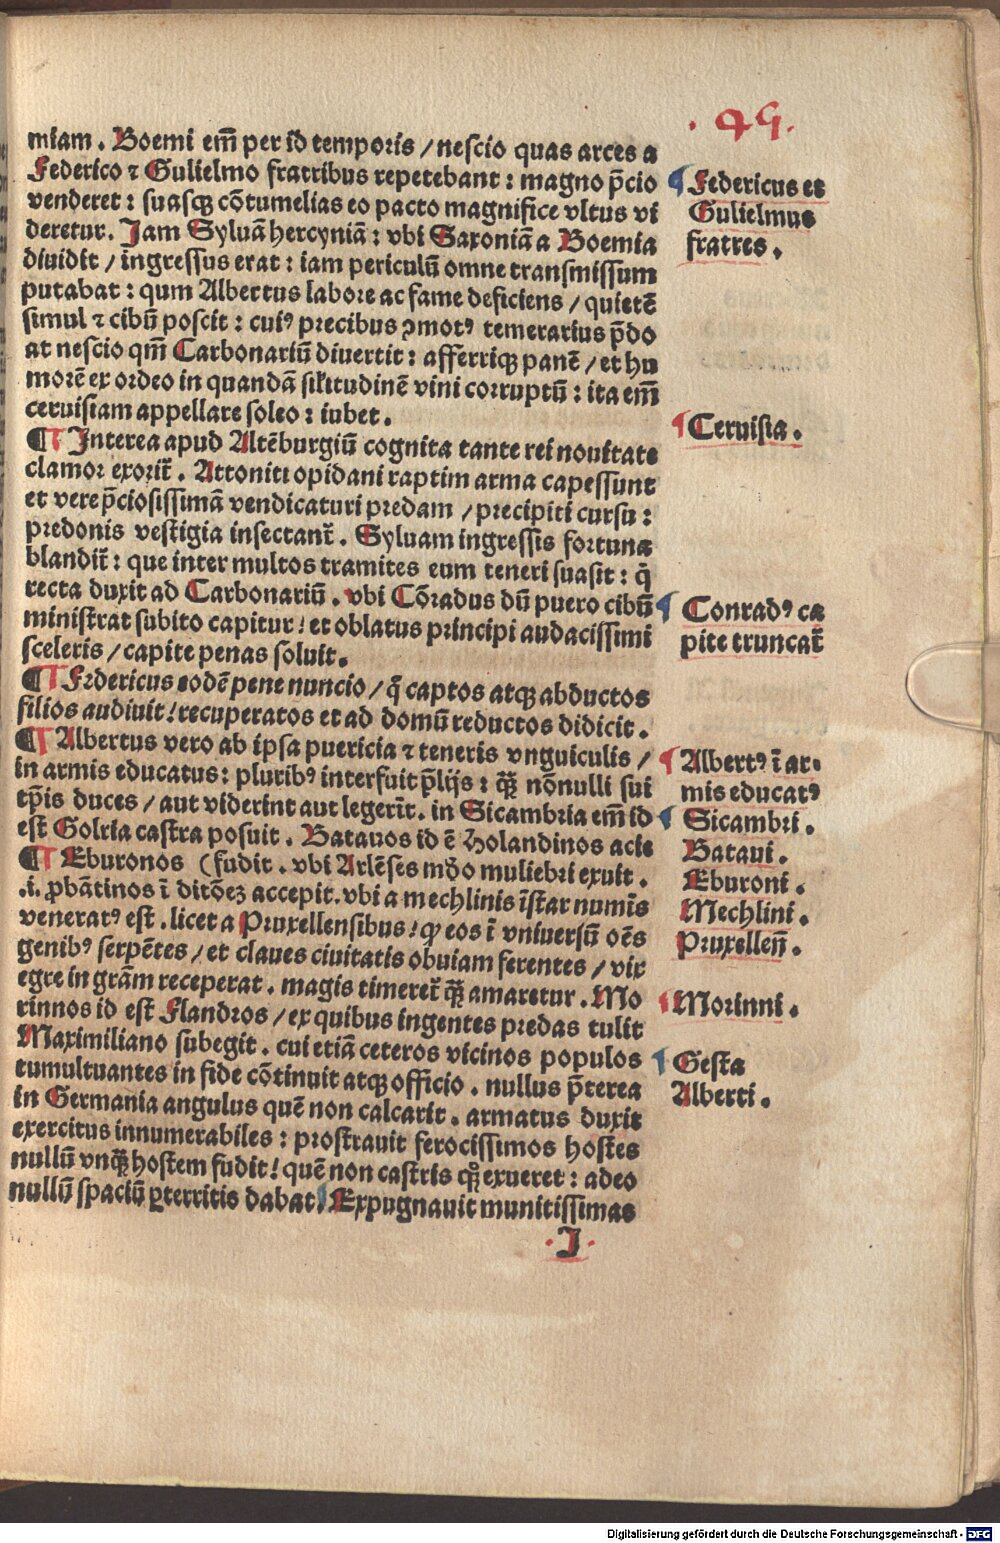 .49.
miam . Boemi em̄ per id temporis / nescio quas arces a
Federico ⁊ Gulielmo fratribus repetebant : magno p̄cio
venderet : suasqꝫ cōtumelias eo pacto magnifice vltus vi
deretur . Jam Syluā hercyniā : vbi Saxoniā a Boemia
diuidit / ingressus erat : iam periculū omne transmissum
putabat : qum Albertus labore ac fame deficiens / quietē
simul ⁊ cibū poscit : cuiꝰ precibus ꝯmotꝰ temerarius p̄do
at nescio qm̄ Carbonariū diuertit : afferriqꝫ panē / et hu
morē ex ordeo in quandā sil̄itudinē vini corruptū : ita em̄
ceruisiam appellare soleo : iubet .
¶ Interea apud Altēburgiū cognita tante rei nouitate
clamor exorit̄ . Attoniti opidani raptim arma capessunt
et vere p̄ciosissimā vendicaturi predam / precipiti cursu :
predonis vestigia insectant̄ . Syluam ingressis fortuna
blandit̄ : que inter multos tramites eum teneri suasit : q̄
recta duxit ad Carbonariū . vbi Cōradus dū puero cibū
ministrat subito capitur : et oblatus principi audacissimi
sceleris / capite penas soluit .
¶ Federicus eodē pene nuncio / q̄ captos atqꝫ abductos
filios audiuit : recuperatos et ad domū reductos didicit .
¶ Albertus vero ab ipsa puericia ⁊ teneris vnguiculis /
in armis educatus : pluribꝰ interfuit p̄lijs : qꝫ̄ nōnulli sui
tp̄is duces / aut viderint aut legerīt . in Sicambria em̄ id
est Golria castra posuit . Batauos id ē Holandinos acie
¶ Eburonos ( fudit . vbi Arlēses mo̊do muliebri exuit .
.i. ꝓbātinos ī ditōeꝫ accepit . vbi a mechlinis īstar numīs
veneratꝰ est . licet a Pruxellensibus : qꝙ eos ī vniuersū oēs
genibꝰ serpētes / et claues ciuitatis obuiam ferentes / vix
egre in grām receperat . magis timeret̄ qꝫ̄ amaretur . Mo
rinnos id est Flandros / ex quibus ingentes predas tulit
Maximiliano subegit . cui etiā ceteros vicinos populos
tumultuantes in fide cōtinuit atqꝫ officio . nullus p̄terea
in Germania angulus quē non calcarit . armatus duxit
exercitus innumerabiles : prostrauit ferocissimos hostes
nullū vnqꝫ̄ hostem fudit : quē non castris qꝫ̊ exueret : adeo
nullū spaciū ꝑterritis dabat : Expugnauit munitissimas
. J .
Federicus et
Gulielmus
fratres .
Ceruisia .
Conradꝰ ca
pite truncat̄
Albertꝰ ī ar
mis educatꝰ
Sicambri .
Bataui .
Eburoni .
Mechlini .
Pruxellen̄ .
Morinni .
Gesta
Alberti .
Digitalisierung gefördert durch die Deutsche Forschungsgemeinschaft - DFG